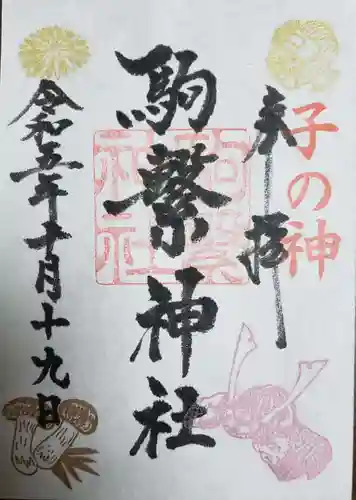 奉拝
子の神
駒繋神社
駒繋神社
令和五年十月十九日